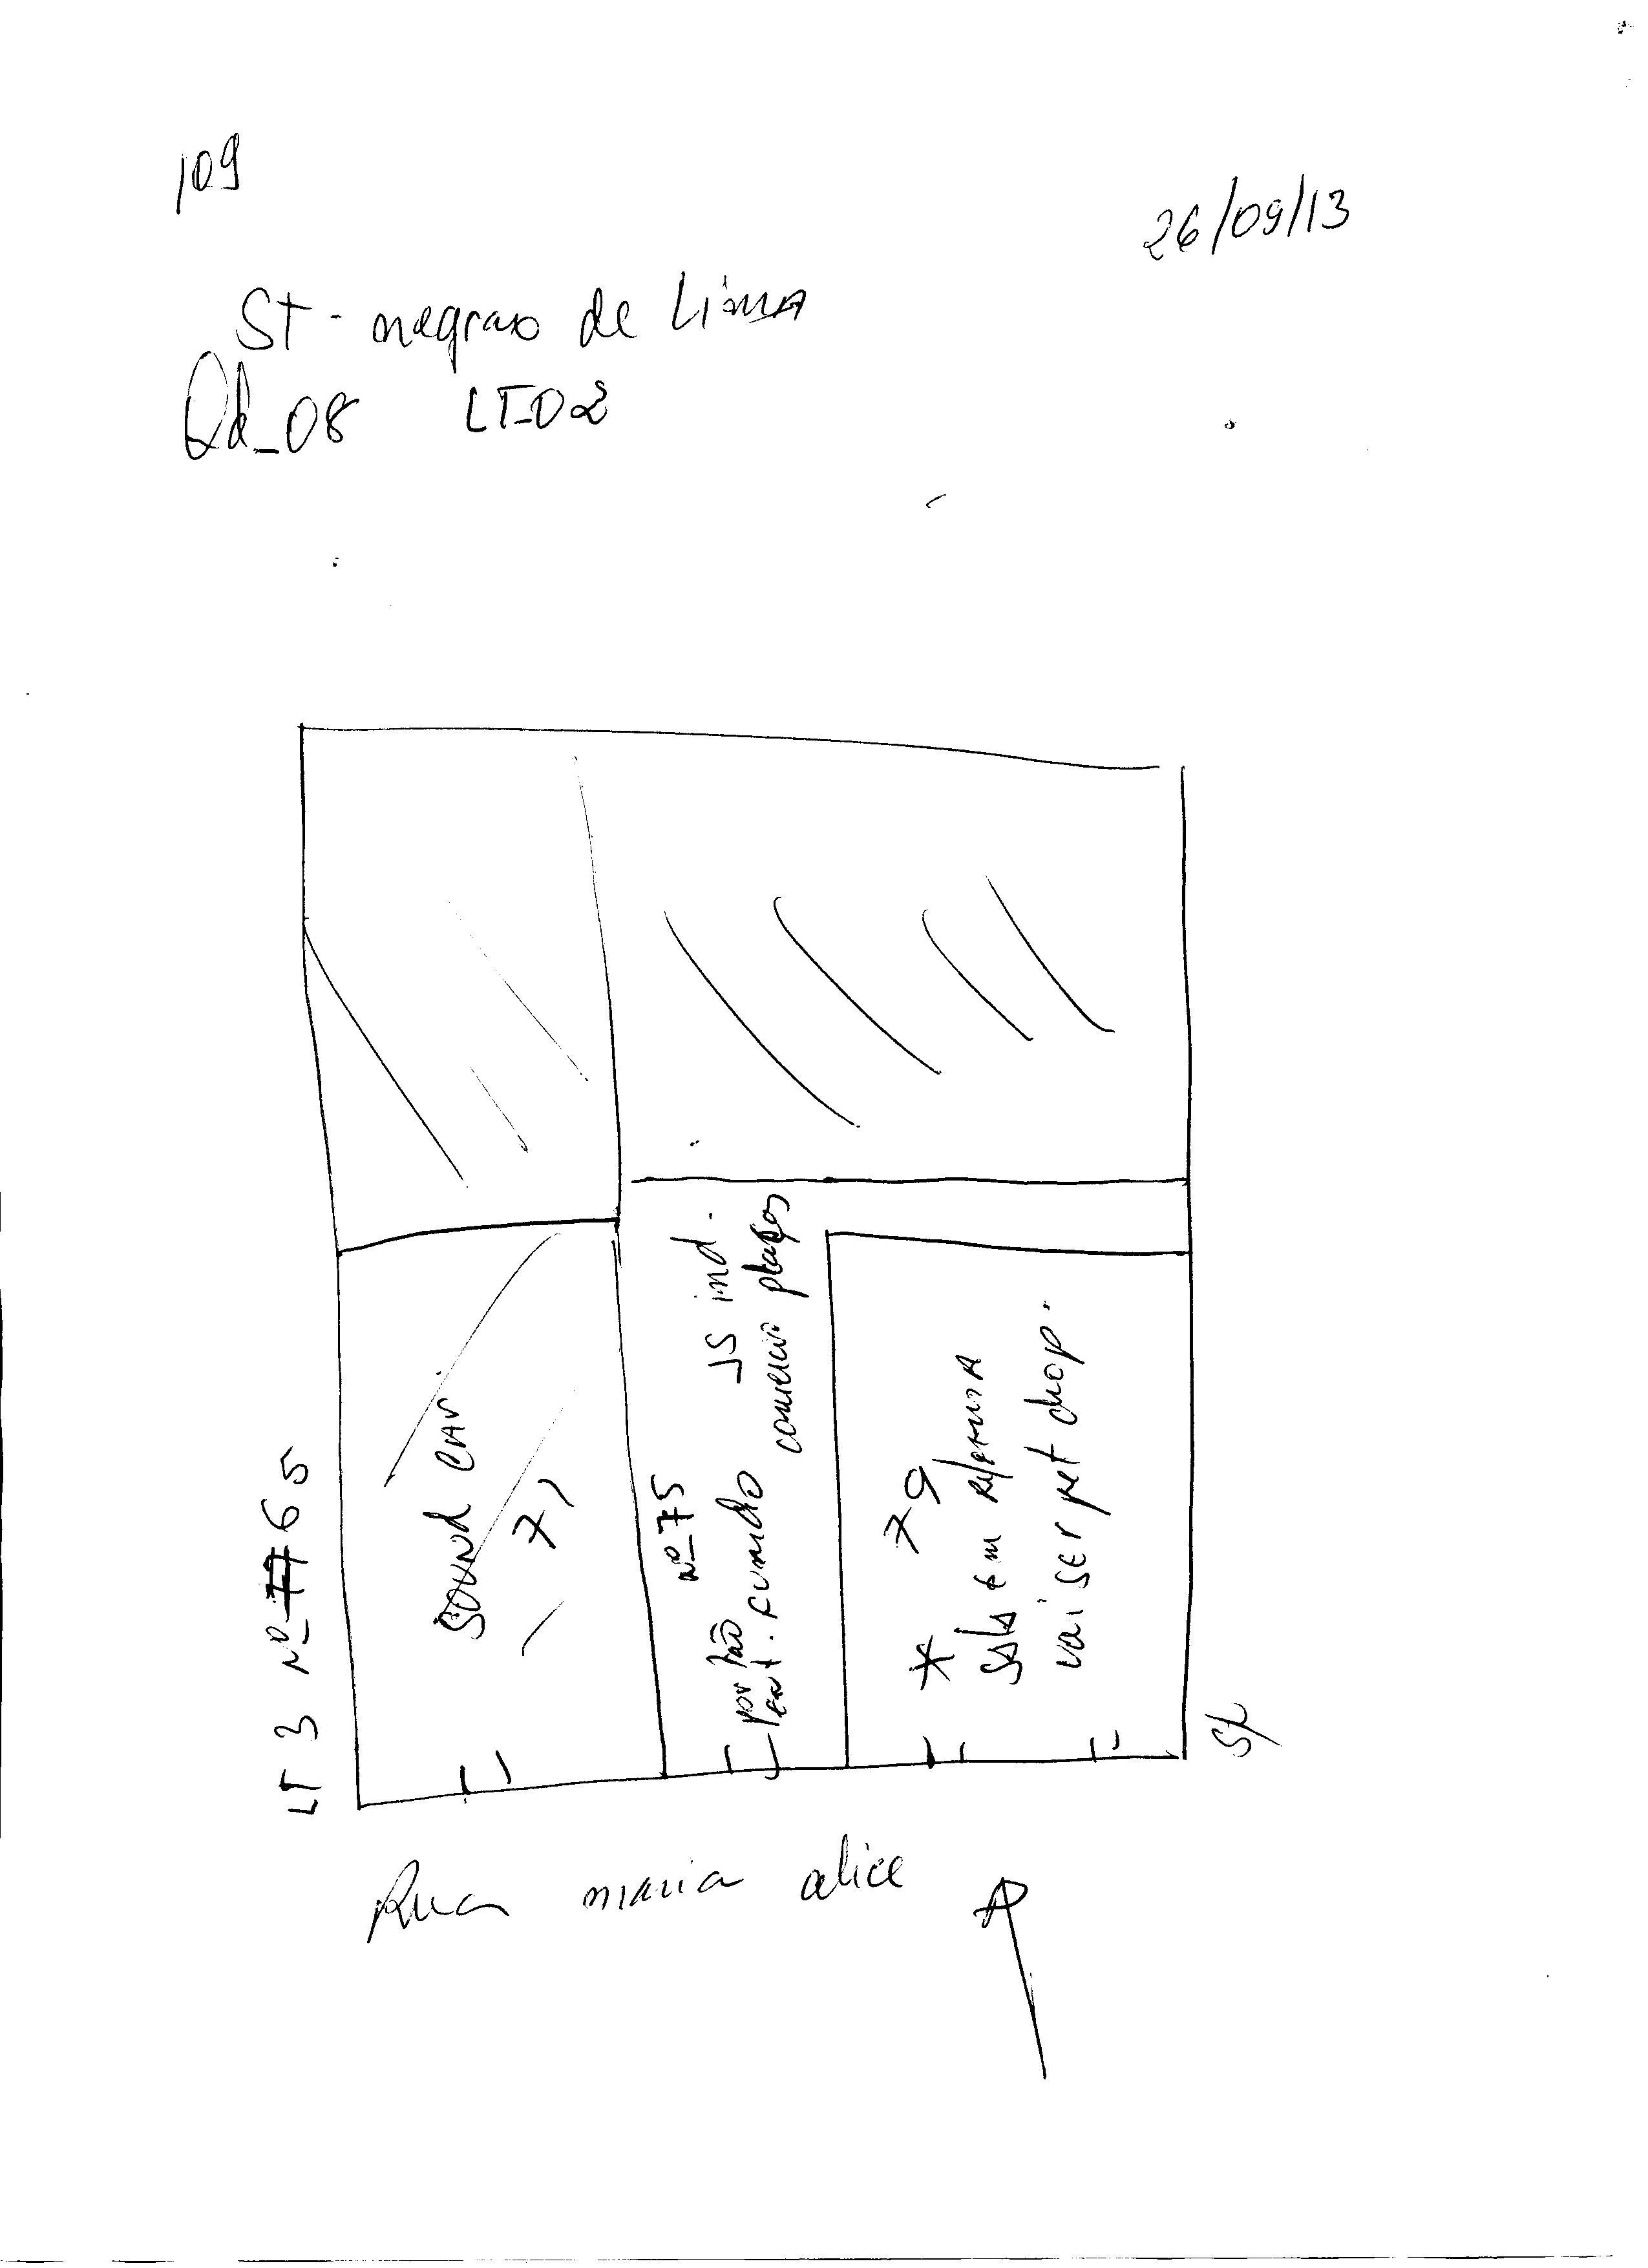 109
26/09/13
ST - negrao de Lima
Qd_08 LT-02
LT 3 Nº_77 65
SOUNd CAR
71
nº_75
portão
ent. FUNDO
JS ind.
comercio plaças
* 79
sala em reforma
vai SER pet chop.
Rua maria alice